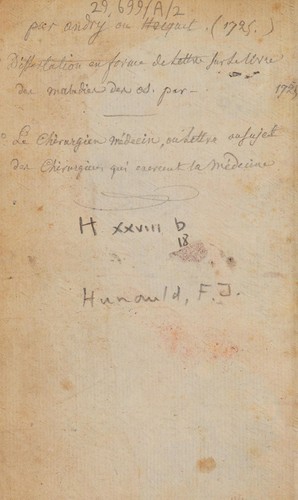 29,699/A/2
par Andry ou Hecquet. (1725.)
Dissertation en forme de Lettre sur le livre
des maladies des os. par — 1725
Le Chirurgien médecin, ou Lettre au sujet
des Chirurgiens qui exercent la Médecine
H xxviii b
18
Hunauld, F. J.